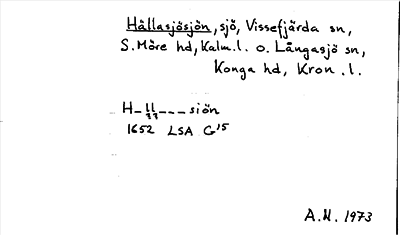 Hållasjösjön, sjö, Vissefjärda sn,
S. Möre hd, Kalm. l. o. Långasjö sn,
Konga hd, Kron. l.
H-ll---siön
1652 LSA G15
A.N. 1973